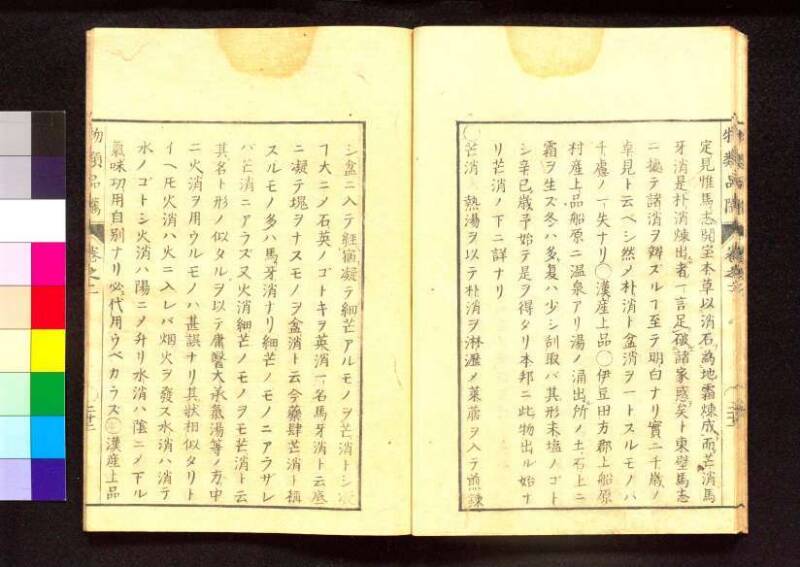 定見惟馬志開宝本草以消石為地霜煉成而芒消馬
牙消是朴消煉出者一言足破諸家惑矣ト東壁馬志
ニ據テ諸消ヲ辨ズルヿ至テ明白ナリ實ニ千歳ノ
卓見ト云ベシ然メ朴消ト盆消ヲ一トスルモノハ
千慮ノ一失ナリ○漢産上品○伊豆田方郡上船原
村産上品船原ニ温泉アリ湯ノ涌出所ノ土石上ニ
霜ヲ生ズ冬ハ多夏ハ少シ刮取バ其形末塩ノゴト
シ辛巳歳予始テ是ヲ得タリ本邦ニ此物出ル始ナ
リ芒消ノ下ニ詳ナリ
○芒消 熱湯ヲ以テ朴消ヲ淋瀝メ莱菔ヲ入テ煎諫
シ盆ニ入テ經宿凝テ細芒アルモノヲ芒消トシ
ヿ大ニメ石英ノゴトキヲ英消一名馬牙消ト云底
ニ凝テ塊ヲナスモノヲ盆消ト云今藥肆芒消ト稱
スルモノ多ハ馬牙消ナリ細芒ノモノニアラザレ
バ芒消ニアラズ又火消細芒ノモノヲモ芒消ト云
其名ト形ノ似タルヲ以テ庸醫大承氣湯等ノ方中
ニ火消ヲ用ウルモノハ甚誤ナリ其狀相似タリト
イヘ𪜈火消ハ火ニ入レバ烟火ヲ發ス水消ハ消テ
水ノゴトシ火消ハ陽ニメ升リ水消ハ陰ニメ下ル
氣味功用自別ナリ必代用ウベカラズ○漢産上品
物類品隲 卷之二